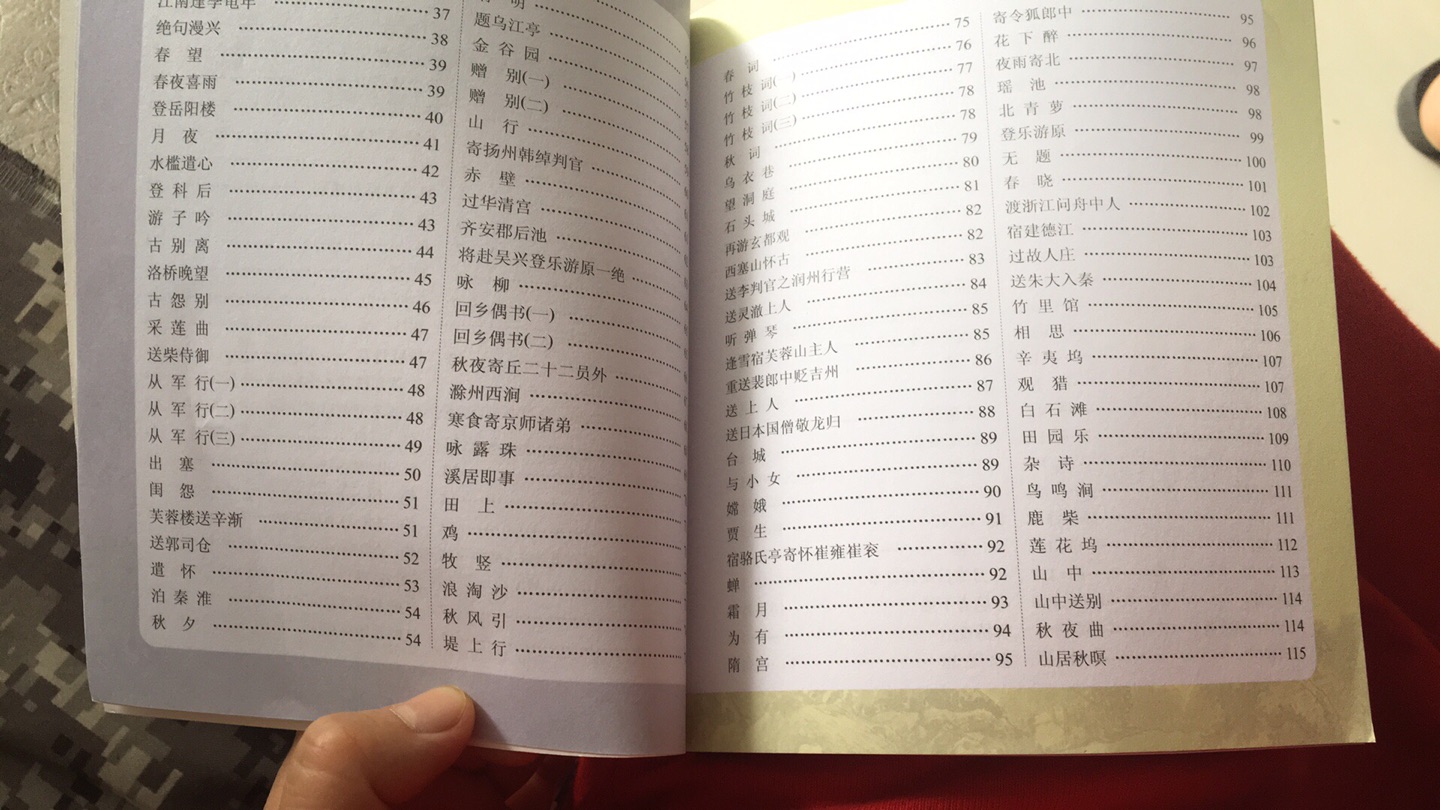 江南逢李龟年 37
绝句漫兴 38
春望 39
春夜喜雨 39
登岳阳楼 40
月夜 41
水槛遣心 42
登科后 43
游子吟 43
古别离 44
洛桥晚望 45
古怨别 46
采莲曲 47
送柴侍御 47
从军行(一) 48
从军行(二) 48
从军行(三) 49
出塞 50
闺怨 51
芙蓉楼送辛渐 51
送郭司仓 52
遣怀 53
泊秦淮 54
秋夕 54
明
题乌江亭
金谷园
赠别(一)
赠别(二)
山行
寄扬州韩绰判官
赤壁
过华清宫
齐安郡后池
将赴吴兴登乐游原一绝
咏柳
回乡偶书(一)
回乡偶书(二)
秋夜寄丘二十二员外
滁州西涧
寒食寄京师诸弟
咏露珠
溪居即事
田上
鸡
牧竖
浪淘沙
秋风引
堤上行
春词 75
竹枝词(一) 76
竹枝词(二) 77
竹枝词(三) 78
秋词 78
乌衣巷 79
望洞庭 80
石头城 81
再游玄都观 82
西塞山怀古 82
送李判官之润州行营 83
送灵澈上人 84
听弹琴 85
逢雪宿芙蓉山主人 85
重送裴郎中贬吉州 86
送上人 87
送日本国僧敬龙归 88
台城 89
与小女 89
嫦娥 90
贾生 91
宿骆氏亭寄怀崔雍崔衮 92
蝉 92
霜月 93
为有 94
隋宫 95
寄令狐郎中 95
花下醉 96
夜雨寄北 97
瑶池 98
北青萝 98
登乐游原 99
无题 100
春晓 101
渡浙江问舟中人 102
宿建德江 103
过故人庄 103
送朱大入秦 104
竹里馆 105
相思 106
辛夷坞 107
观猎 107
白石滩 108
田园乐 109
杂诗 110
鸟鸣涧 111
鹿柴 111
莲花坞 112
山中 113
山中送别 114
秋夜曲 114
山居秋暝 115